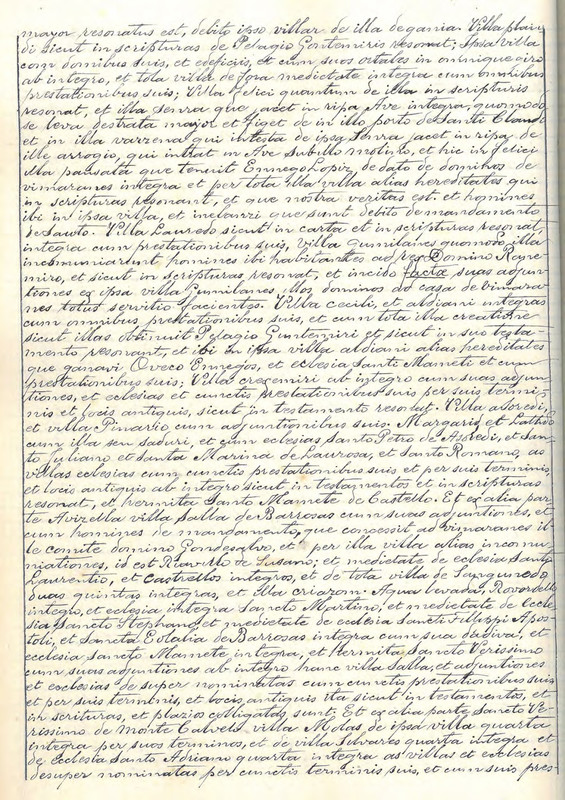 mayor resonatus est, debito ipso villar de illa degania. Villa planu
di sicut in scripturas de Pelagio Gontemiris resonat; Ipsa villa
com domibus suis, et edeficiis, et cum suos ortales in omnique giro
ab integro, et tota villa de fora medietate integra cum omnibus
prestationibus suis; Villa felici quantum de illa in scripturis
resonat, et illa senra que jacet in ripa Ave integra, quomodo
se leva destrata major et figet de in illo porto de Santi Claudi
et in illa varzena qui intesta de ipsa senra jacet in ripa de
ille arrogio, qui intrat in Ave subillo molino, et hic in felici
illa pausata que tenuit Ennego Lopiz, de dato de dominos de
vimaranes integra et per tota illa villa alias hereditates qui
in scripturas resonant, et que nostra veritas est. et homines
ibi in ipsa villa, et in debito de mandamento
de Sauto. Villa Lauredo sicut in carta et in scripturas resonat,
integra cum prestationibus suis, villa Gumilanes quomodo illa
incomuniarunt homines ibi habitantes ad rex Domino Rane-
miro, et sicut in scripturas resonat, et incido facta suas adjun-
tiones ex ipsa villa Gumilanes. Nos dominos ad casa de vimara-
nes totus servitio facientes. Villa cecili, et aldiani integras
cum omnibus prestationibus suis, et cum tota illa creatione
sicut illas obtinuit Pelagio Guntemiri et sicut in suo testa-
mento resonant, et ibi in ipsa villa aldiani alias hereditates
que ganavi Oveco Ennegos, et eclesia Santi Mameti et cum
prestationibus suis; Villa creximiri ab integro cum suas adjun
tiones, et eclesias et cunctis prestationibus suis per suis termi-
nis et locis antiquis, sicut in testamento resonat. Villa asoredi,
et villa Pinario cum adjuntionibus suis. Margaris, et Lalhido
cum illa seu saduri, et cum eclesias Santo Petro de Asoredi, et San-
to Juliano et Santa Marina de Laurosa, et Santo Romano, as
villas eclesias cum cunctis prestationibus suis et per suis terminis,
et locis antiquis ab integro sicut in testamentos et in scripturas
resonat, et hermita Santo Mamete de Castello. Et ex alia par
te Avizella villa Salla de Barrosas cum suas adjuntiones, et
cum homines de mandamento, que concessit ad vimaranes il
le comite domino Gondesalvo, et per illa villa alias incomu
niationes, id est Riavulo de Susano; et medietate de eclesia Santo
Laurentio, et Castrellos integros, et de tota villa de Sangunedo
duas quintas integras, et illa criazom. Aqua levada, Rovordello
integro, et eclesia integra Sancto Martino, et medietate de eccle
sia Sancto Stephano, et medietate de ecclesia Sancti Filippi Apos-
toli, et Sancta Eolalia de Barrosas integra cum sua dadiva, et
ecclesia Sancto Mamete integra, et hermita Sancto Verissimo
cum suas adjuntiones ab integro hanc villa Salla, et adjuntiones
et esclesias de super nominatas cum cunctis prestationibus suis
et per suis terminis, et locis antiquis ita sicut in testamentos, et
in scrituras, et plazios colligatas, sunt. Et ex alia parte Sancto Ve-
rissimo de Monte Calvelo villa Molas, de ipsa villa quarta
integra per suos terminos, et de villa Silvares quarta integra et
de ecclesia Santo Adriano quarta integra as villas et ecclesias
desuper nominatas per cunctis terminis suis, et cum suis pres-